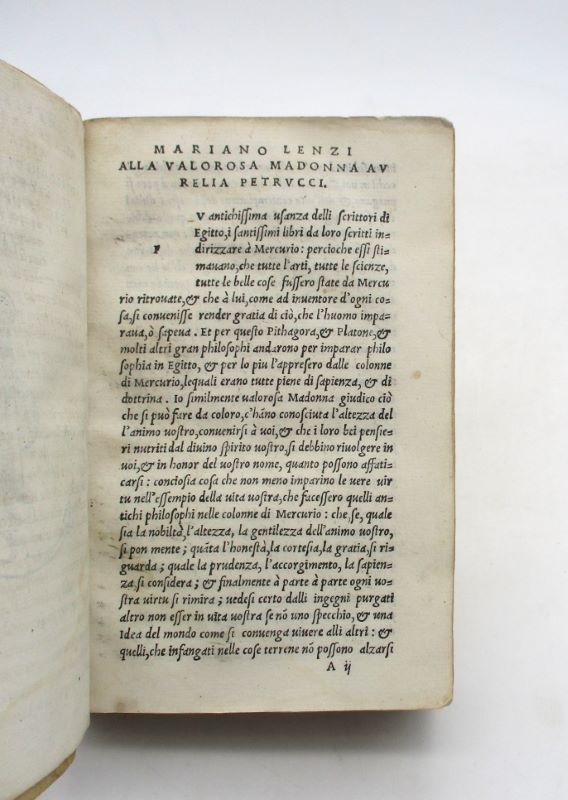 MARIANO LENZI
ALLA VALOROSA MADONNA AV
RELIA PETRVCCI.
V antichissima usanza delli scrittori di
Egitto, i santissimi libri da loro scritti in-
F
dirizzare à Mercurio: percioche essi sti-
mauano, che tutte l'arti, tutte le scienze,
tutte le belle cose fussero state da Mercu
rio ritrouate, & che à lui, come ad inuentore d'ogni co-
sa, si conuenisse render gratia di ciò, che l'huomo impa-
raua, ò sapeua. Et per questo Pithagora, & Platone, &
molti altri gran philosophi andarono per imparar philo
sophia in Egitto, & per lo piu l'appresero dalle colonne
di Mercurio, lequali erano tutte piene di sapienza, & di
dottrina. Io similmente ualorosa Madonna giudico ciò
che si può fare da coloro, c'hãno conosciuta l'altezza del
l'animo uostro, conuenirsi à uoi, & che i loro bei pensie-
ri nutriti dal diuino spirito uostro, si debbino riuolgere in
uoi, & in honor del uostro nome, quanto possono affati-
carsi: conciosia cosa che non meno imparino le uere uir
tu nell'essempio della uita uostra, che facessero quelli an-
tichi philosophi nelle colonne di Mercurio: che se, quale
sia la nobiltà, l'altezza, la gentilezza dell'animo uostro,
si pon mente; quãta l'honestà, la cortesia, la gratia, si ri-
guarda; quale la prudenza, l'accorgimento, la sapien-
za, si considera; & finalmente à parte à parte ogni uo-
stra uirtu si rimira; uedesi certo dalli ingegni purgati
altro non esser in uita uostra se nõ uno specchio, & una
Idea del mondo come si conuenga uiuere alli altri: &
quelli, che infangati nelle cose terrene nõ possono alzarsi
A ij